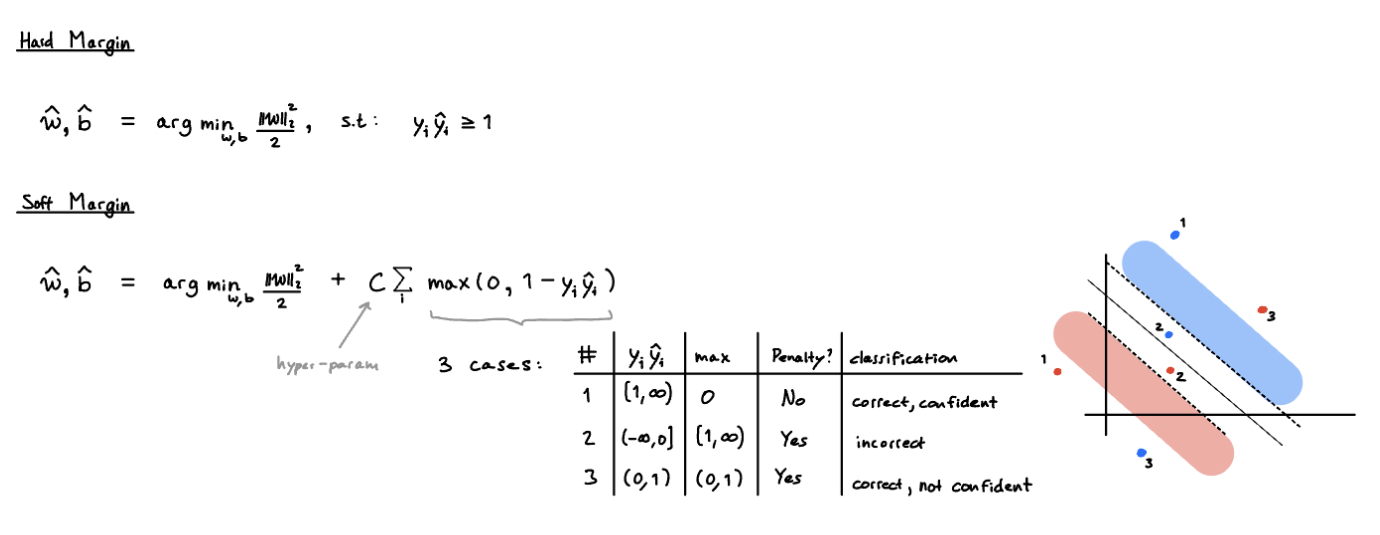 Hard Margin
ŵ, b̂ = arg min_{w,b} ||w||₂² / 2 , s.t: yᵢŷᵢ ≥ 1
Soft Margin
ŵ, b̂ = arg min_{w,b} ||w||₂² / 2 + C Σᵢ max(0, 1 - yᵢŷᵢ)
hyper-param
3 cases:
# yᵢŷᵢ max Penalty? classification
1 [1,∞) 0 No correct, confident
2 (-∞,0] [1,∞) Yes incorrect
3 (0,1) (0,1) Yes correct, not confident
1
3
2
1
2
3